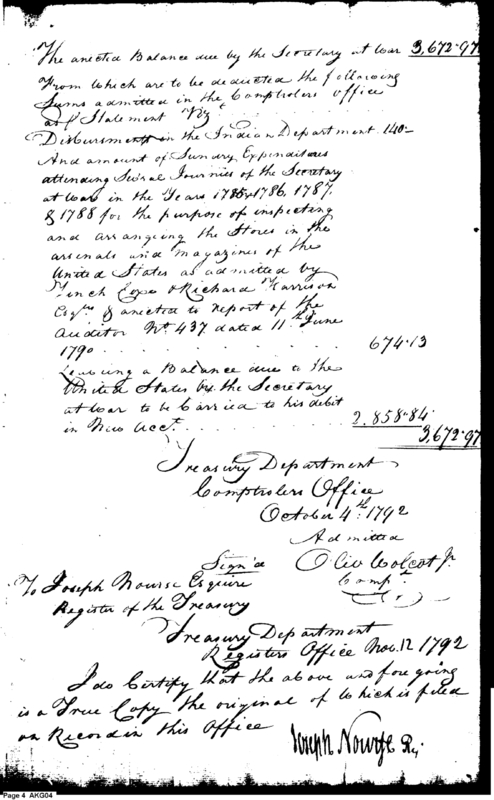 The anexed Balance due by the Secretary at War 3,672.97
From which are to be deducted the following
Sums admitted in the Comptrolers Office
as Statement Viz
Disbursments in the Indian Department 140-
And amount of Sundry Expenditures
attending Several Journies of the Secretary
at War in the Years 1785, 1786, 1787,
& 1788 for the purpose of inspecting
and arrangeing the Stores in the
arsenals and magazines of the
United States as admitted by
& Richard Harrison
Esqrs & anexed to report of the
Auditor No 437 dated 11th June
1790 . . . . . . . . . . . . 674.13
Leaving a Balance due to the
United States by the Secretary
at War to be Carried to his debit
in New Acct. . . . . . . . . . 2,858.84
3,672.97
Treasury Department
Comptrolers Office
October 4th 1792
Admitted
Sign'd Oliv Wolcot Jr
Compt
To Joseph Nourse Esquire
Register of the Treasury
Treasury Department
Registers Office Nov. 12 1792
I do Certify that the above and fore going
is a True Copy the original of Which is filed
on Record in this Office
Joseph Nourse Reg.
Page 4 AKG04